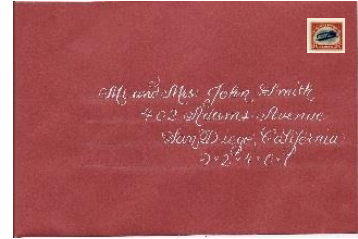 Mr. and Mrs. John Smith
402 Adams Avenue
San Diego, California
9•2•4•0•1